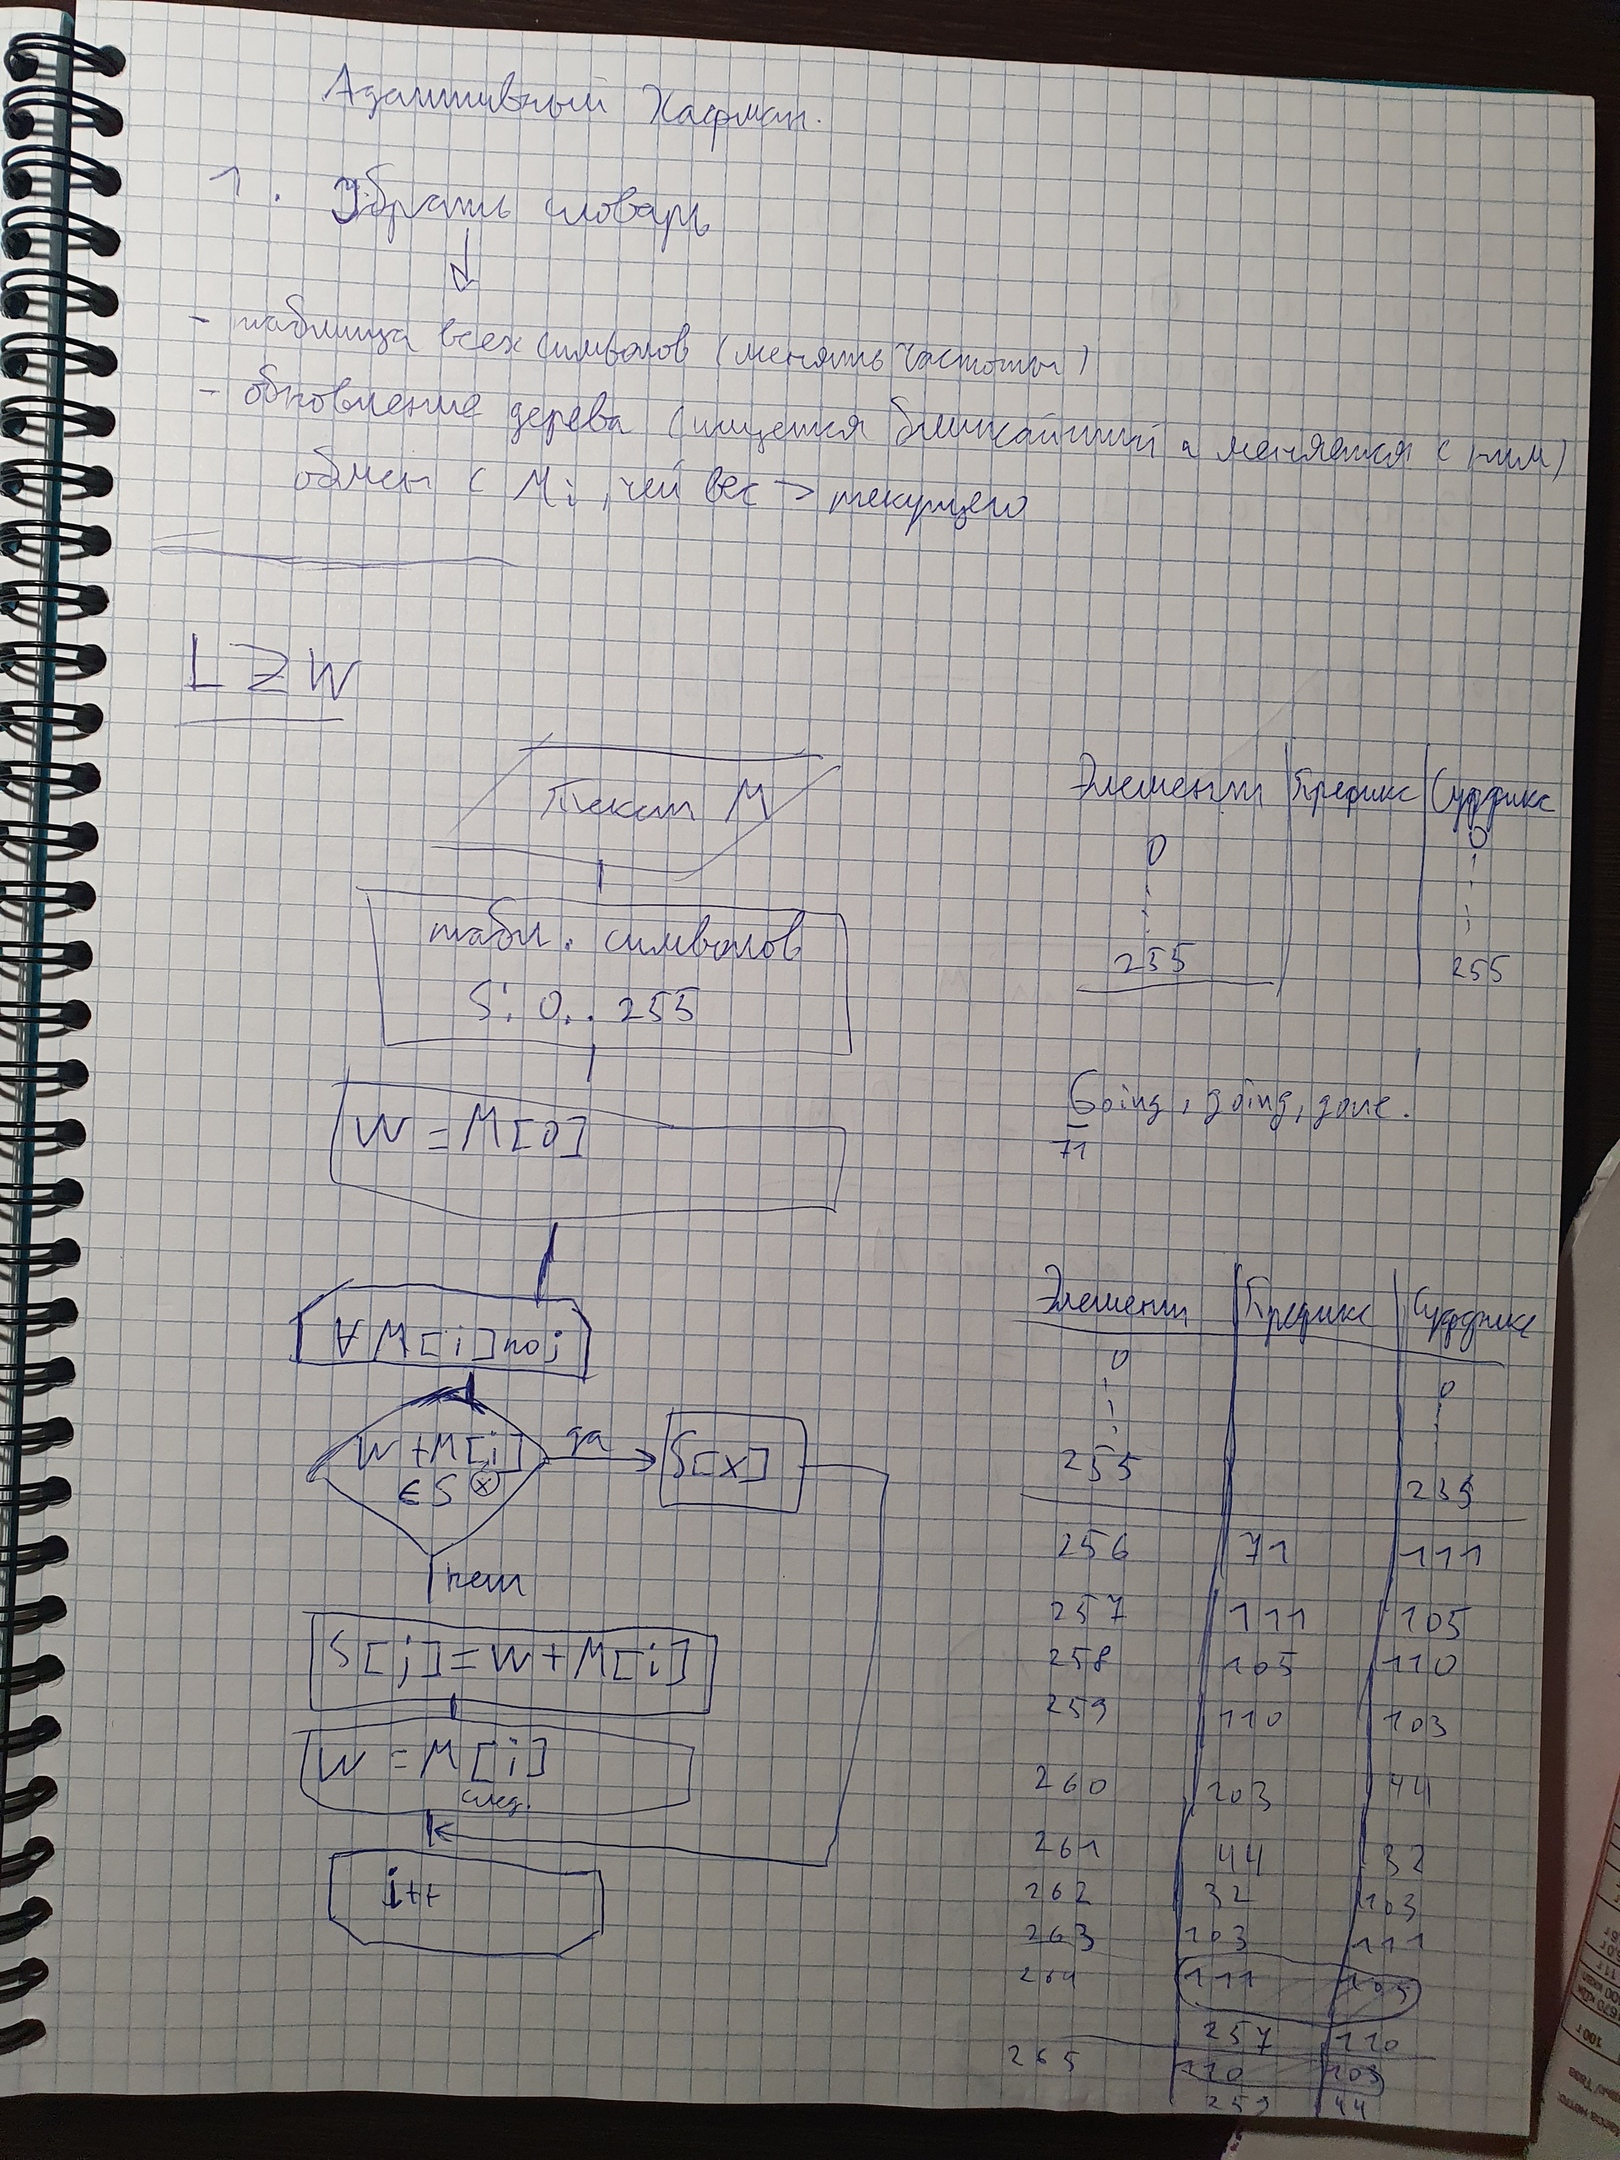 Адаптивный Хафман.
1. Убрать словарь
- таблица всех символов (менять частоты)
- обновление дерева (ищется ближайший и меняется с ним)
обмен с Mi, чей вес > текущего
LZW
Текст M
табл. символов
S: 0..255
W = M[0]
∀ M[i] по j
W + M[i]
∈ S (x)
да
S[x]
нет
S[j] = W + M[i]
W = M[i]
след.
i++
Элемент | Префикс | Суффикс
0 0
255 255
Going, going, gone.
71
Элемент | Префикс | Суффикс
0 0
255 255
256 71 111
257 111 105
258 105 110
259 110 103
260 103 44
261 44 32
262 32 103
263 103 111
264 111 105
257 110
265 110 103
259 44